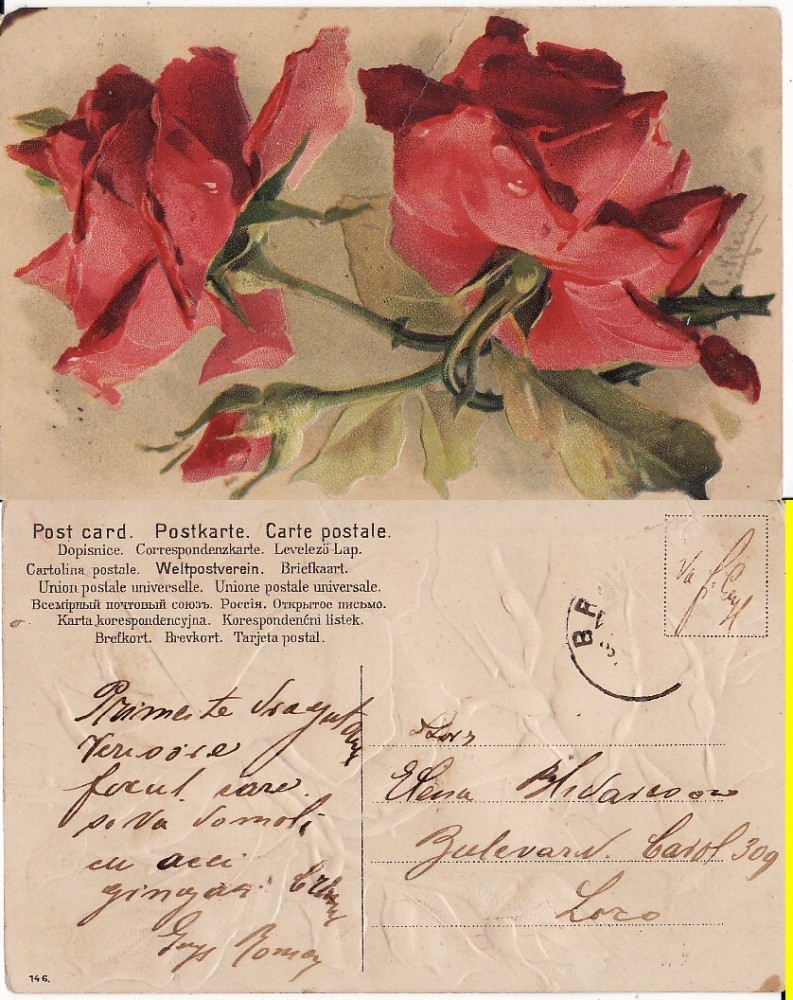 C. Klein
Post card. Postkarte. Carte postale.
Dopisnice. Correspondenzkarte. Levelező-Lap.
Cartolina postale. Weltpostverein. Briefkaart.
Union postale universelle. Unione postale universale.
Всемірный почтовый союзъ. Россія. Открытое письмо.
Karta korespondencyjna. Korespondenčni listek.
Brefkort. Brevkort. Tarjeta postal.
BR
Primeste dragut
focul care
se va domoli
cu acci
gingasi
Elena
Bulevard. Carol 309
Loco
146.